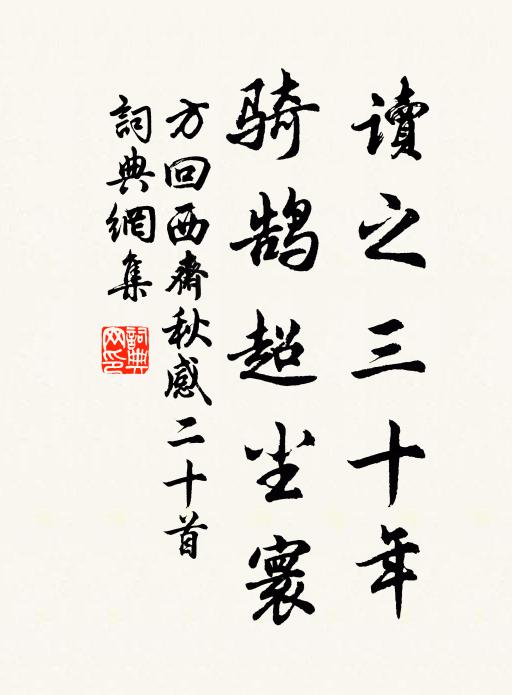 讀之三十年
騎鹄超尘寰
方回西齋秋感二十首
詞典網集
詞典网印